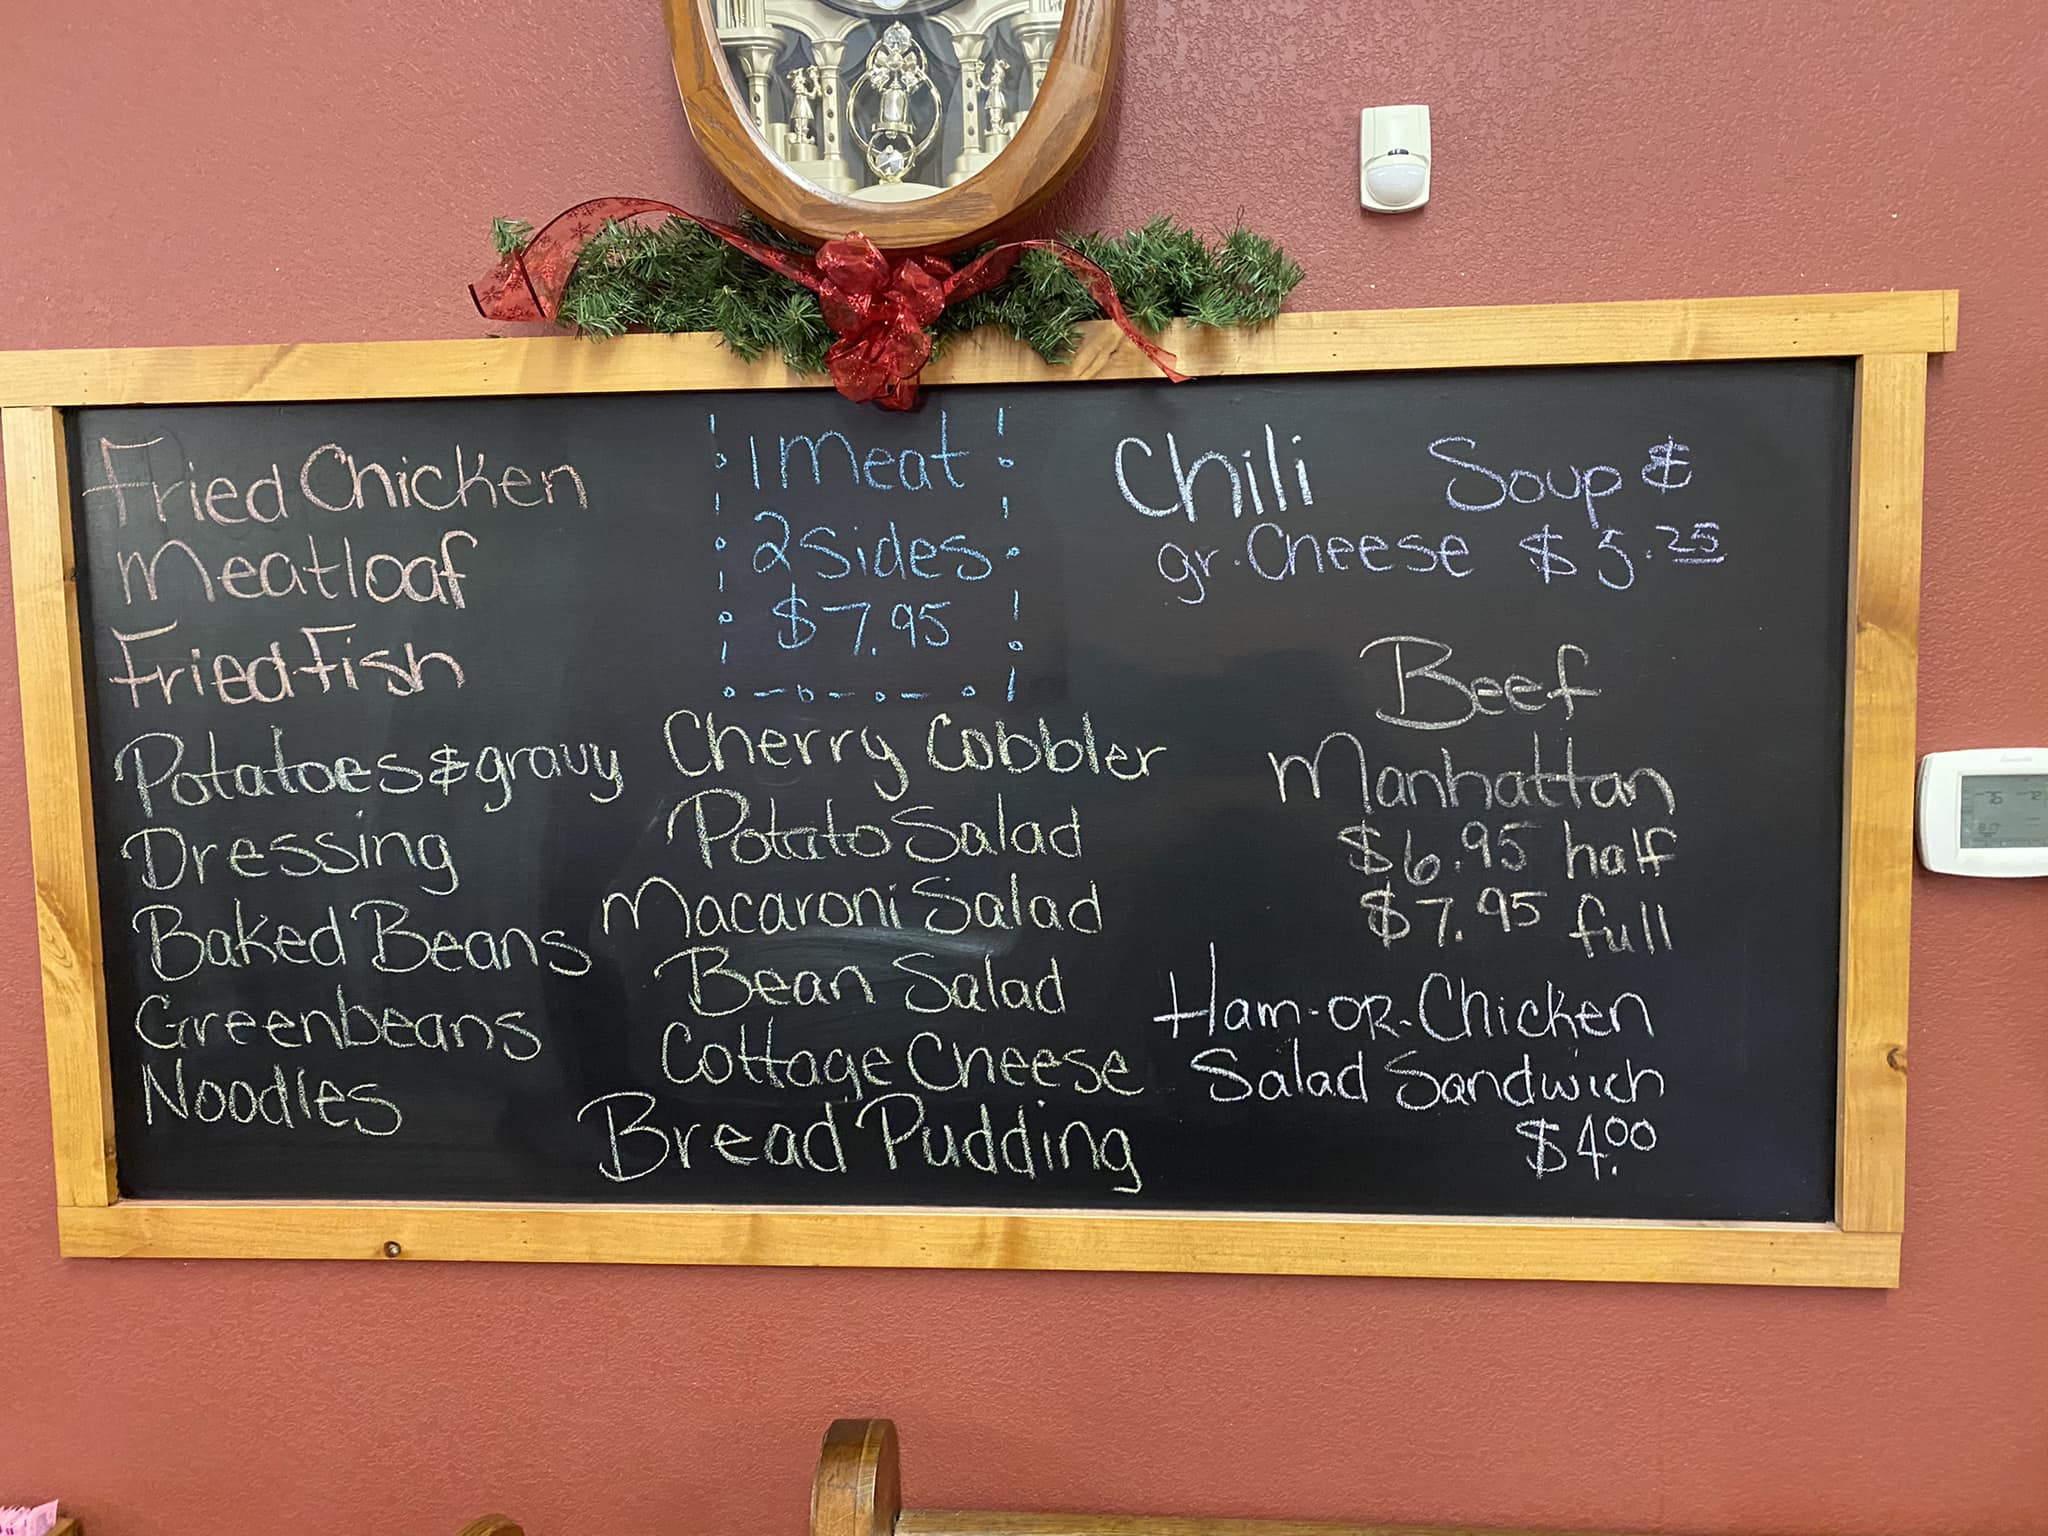 Fried Chicken
Meatloaf
Fried Fish
Potatoes & gravy
Dressing
Baked Beans
Greenbeans
Noodles
1 Meat
2 Sides
$7.95
Cherry Cobbler
Potato Salad
Macaroni Salad
Bean Salad
Cottage Cheese
Bread Pudding
Chili Soup &
gr. Cheese $5.25
Beef
Manhattan
$6.95 half
$7.95 full
Ham-OR-Chicken
Salad Sandwich
$4.00